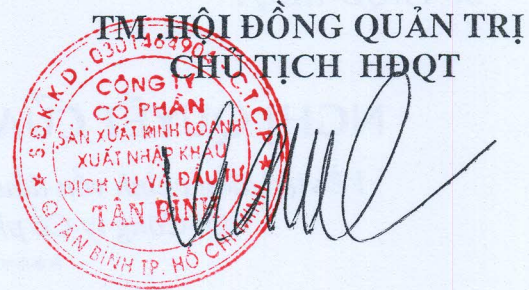 TM .HỘI ĐỒNG QUẢN TRỊ
CHỦ TỊCH HĐQT
S.Đ.K.K.D: 0301464904 C.T.C.P
CÔNG TY
CỔ PHẦN
SẢN XUẤT KINH DOANH
XUẤT NHẬP KHẨU
DỊCH VỤ VÀ ĐẦU TƯ
TÂN BÌNH
Q TÂN BÌNH TP. HỒ CHÍ MINH